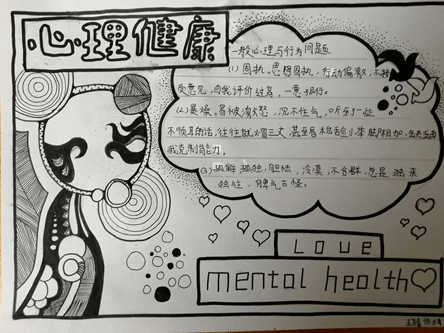 心理健康
一般心理与行为问题
(1)固执,思想固执,行动偏激,不接
受意见,自我评价过高,一意孤行。
(2)暴燥,易被激怒,沉不住气,听到一些
不顺耳的话,往往就火冒三丈,甚至唇枪舌剑拳脚相加,
我克制能力。
(3)孤僻 孤独,胆怯,冷漠,不合群,总是独来
独往,脾气古怪。
Love
mental health